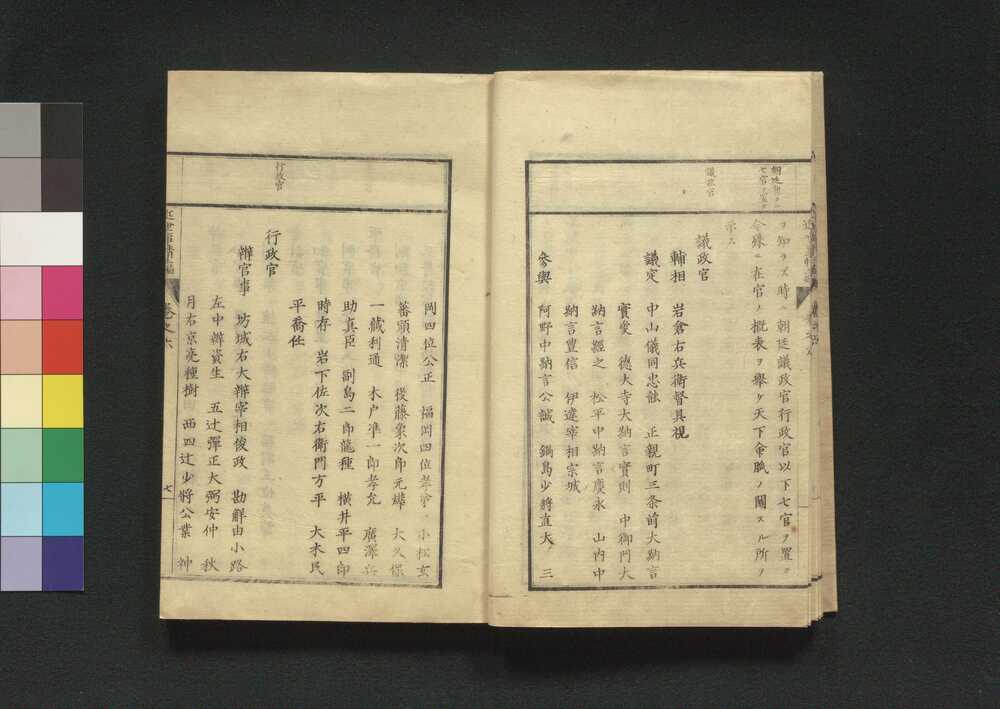 朝廷議政官
七官ヲ置ク
ヲ知ラズ時ニ朝廷議政官行政官以下七官ヲ置ク
令殊ニ在官ノ概表ヲ舉ケ天下命脈ノ關スル所ヲ
示ス
議政官
議政官
輔相 岩倉右兵衛督具視
議定 中山儀同忠能 正親町三条前大納言
實愛 德大寺大納言實則 中御門大
納言經之 松平中納言慶永 山内中
納言豐信 伊達宰相宗城
參與 阿野中納言公誠 鍋島少將直大 三
岡四位公正 福岡四位孝弟 小松玄
蕃頭清潔 後藤象次郎元燁 大久保
一藏利通 木戸準一郎孝允 廣澤兵
助真臣 副島二郎龍種 橫井平四郎
時存 岩下佐次右衛門方平 大木民
平喬任
行政官
行政官
辨官事 坊城右大辨宰相俊政 勘解由小路
左中辨資生 五辻彈正大弼安仲 秋
月右京亮種樹 西四辻少將公業 神
近世事情二編 卷之六 七